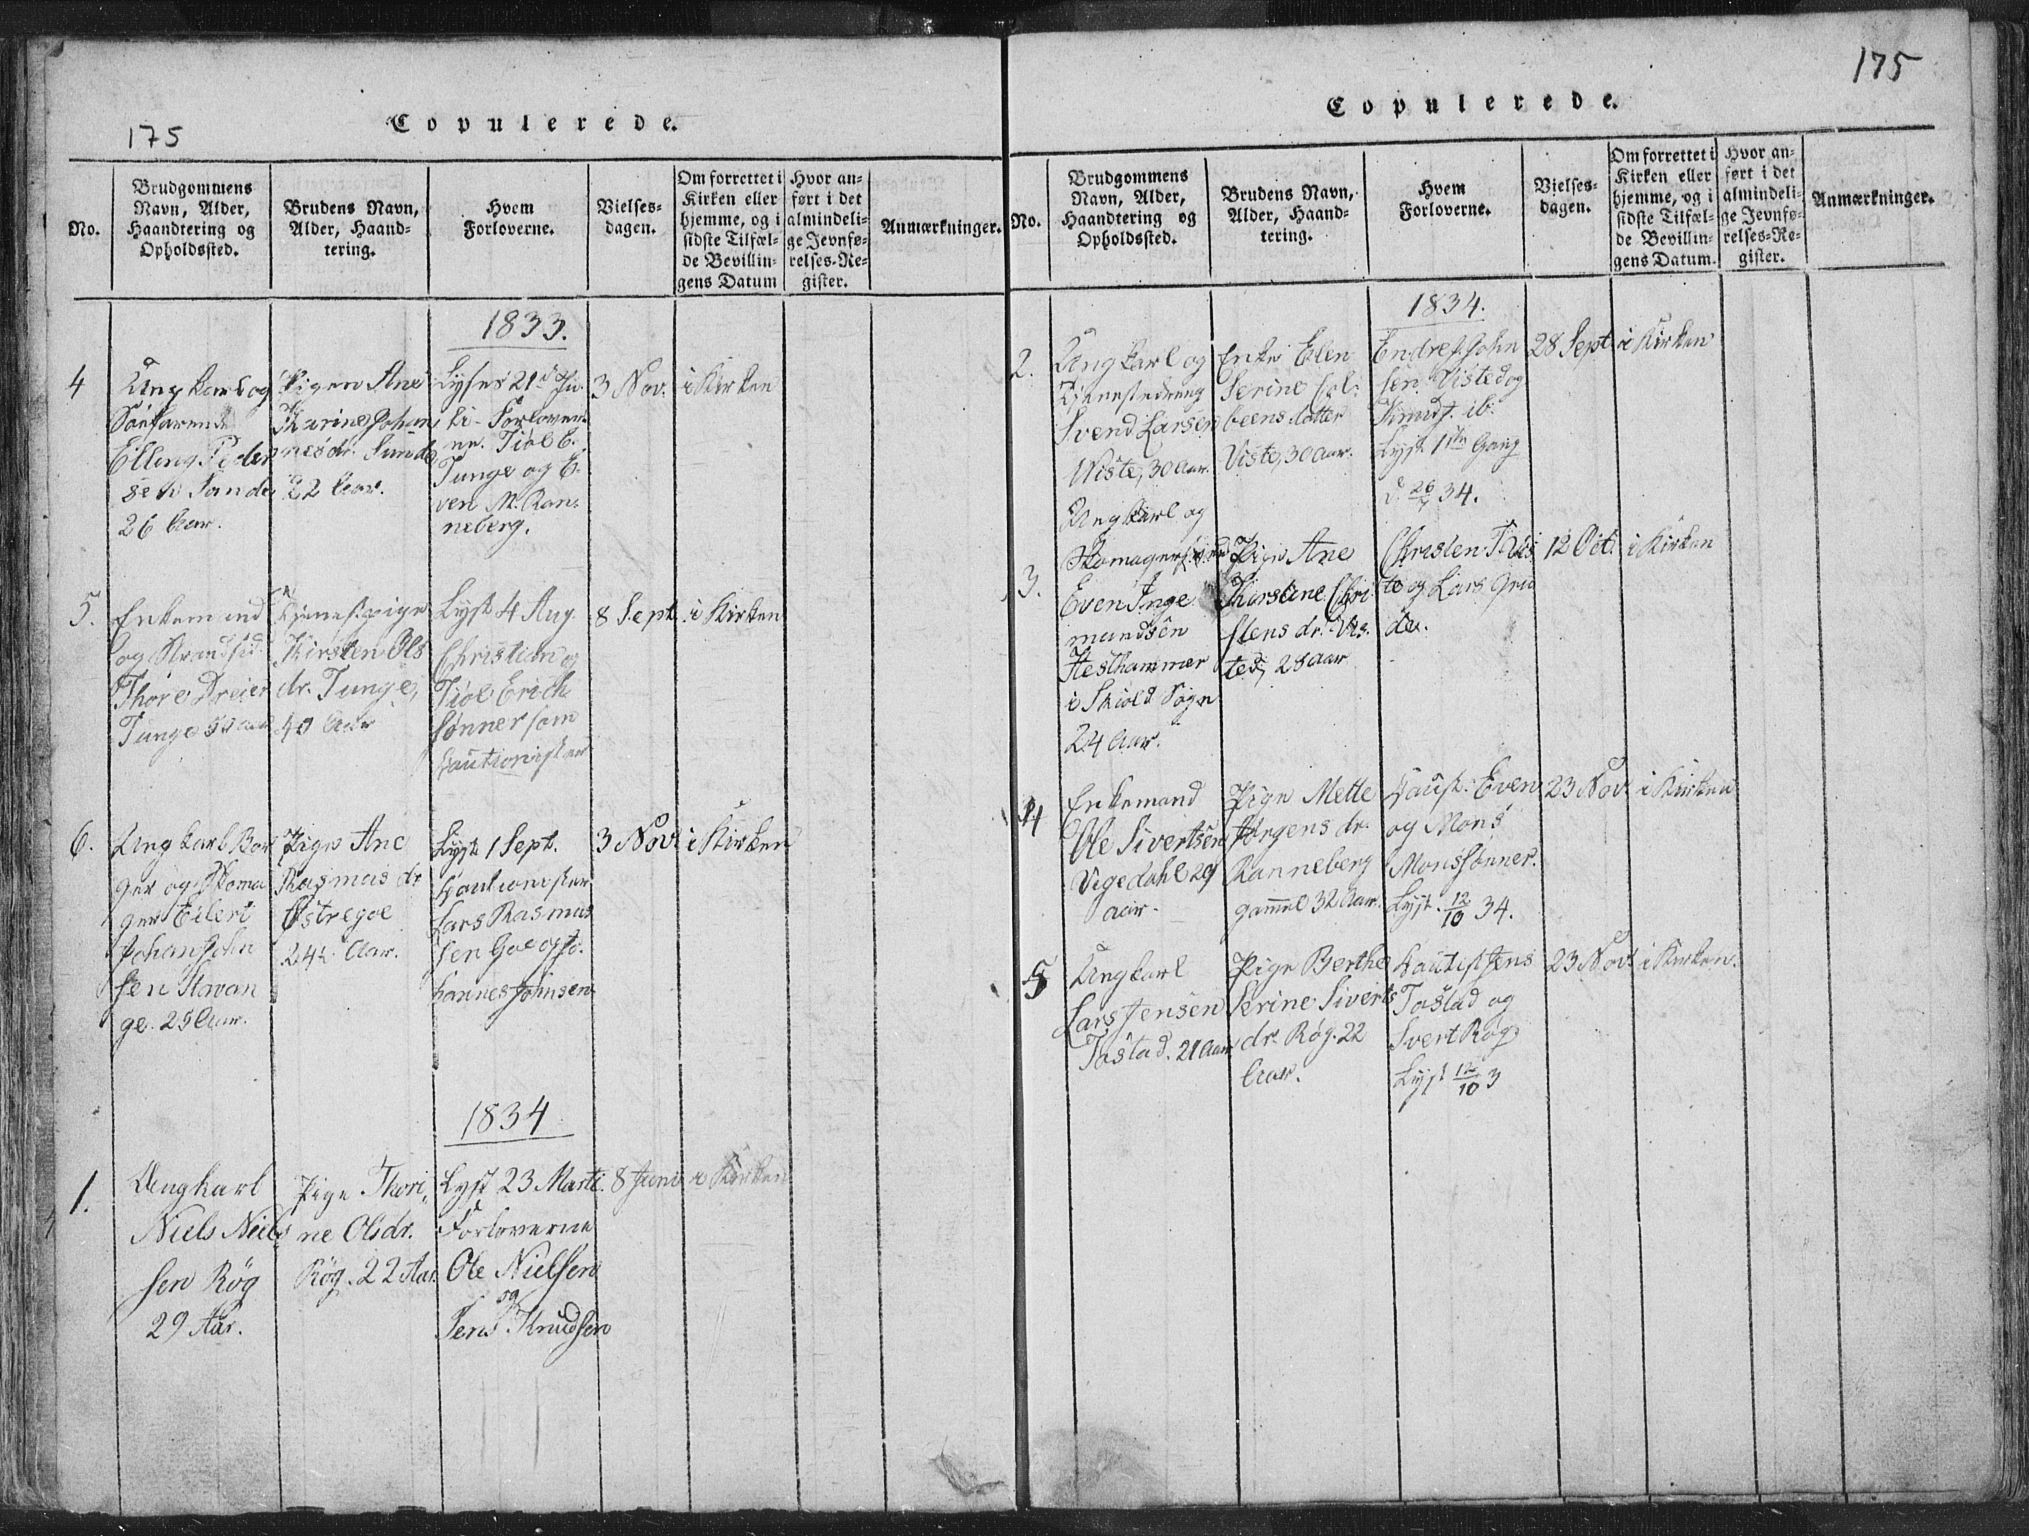 175
Copulerede.
No.
Brudgommens
Navn, Alder,
Haandtering og
Opholdssted.
Brudens Navn,
Alder, Haand-
tering.
Hvem
Forloverne.
Vielses-
dagen.
Om forrettet i
Kirken eller
hjemme, og i
sidste Tilfæl-
de Bevillin-
gens Datum
Hvor an-
ført i det
almindeli-
ge Jevnfø-
relses-Re-
gister.
Anmærkninger.
1833.
4
Ungkarl og
Søefarende
Elling Peder
sen Sande
26 Aar.
Pigen Ane
Karine Johan
nesdr. Sunde
22 Aar.
Lyses 21d Ju
li. Forlover-
ne. Tiøl E.
Tunge og E-
ven M. Ran-
neberg.
3 Nov.
i Kirken
5.
Enkemand
og Strandsid.
Thore Dreier
Tunge
Tjenestpige
Kirsten Ols
dr. Tunge,
40 Aar
Lyst 4 Aug.
Christian og
Tiøl Erich
sønner som
Cautionister
8 Sept.
i Kirken
6.
Ungkarl Bor
ger og Skoma
ger Eilert
Johan John
sen Stavan
ge. 25 Aar.
Pige Ane
Rasmus dr
Østre goe
24½ Aar.
Lyst 1 Sept.
Cautionister
Lars Rasmus
sen Goe og Jo-
hannes Johnsen
3 Nov.
i Kirken
1834
1.
Ungkarl
Niels Niels
sen Røg
29 Aar.
Pige Thori
ne Olsdr.
Røg. 22 Aar.
Lyst 23 Marti.
Forloverne
Ole Nielsen
og
Jens Knudsen
8 Juni
i Kirken
175
Copulerede.
No.
Brudgommens
Navn, Alder,
Haandtering og
Opholdssted.
Brudens Navn,
Alder, Haand-
tering.
Hvem
Forloverne.
Vielses-
dagen.
Om forrettet i
Kirken eller
hjemme, og i
sidste Tilfæl-
de Bevillin-
gens Datum.
Hvor an-
ført i det
almindeli-
ge Jevnfø-
relses-Re-
gister.
Anmærkninger.
1834.
2.
Ungkarl og
Tjenestedreng
Svend Larsen
Viste, 30 Aar.
Enke Elen
Serine Col-
beensdatter
Viste, 30 Aar.
Endre John
sen Visted og
Knud ib.
Lyst 1ste Gang
d. 26/7 34.
28 Sept
i Kirken
3.
Ungkarl og
Skomager
Even Inge
mundsen
Hesthammer
i Skiold Sogn
24 Aar.
Pige Ane
Kirstine Chri
stens dr. Vis-
ted, 28 Aar
Christen T. Vis
te og Lars Gru
de.
12 Oct.
i Kirken
4
Enkemand
Ole Sivertsen
Vigedahl 29
aar.
Pige Mette
Jørgens dr.
Ranneberg
gammel 32 Aar.
Caust. Even
og Mons
Monssønner.
Lyst. 12/10 34.
23 Nov.
i Kirken
5
Ungkarl
Lars Jensen
Tastad. 21 Aar
Pige Berthe
Serine Siverts
dr. Røg. 22
Aar.
Cautist Jens
Tastad og
Svert Røg
Lyst 12/10 3
23 Nov.
i Kirken.